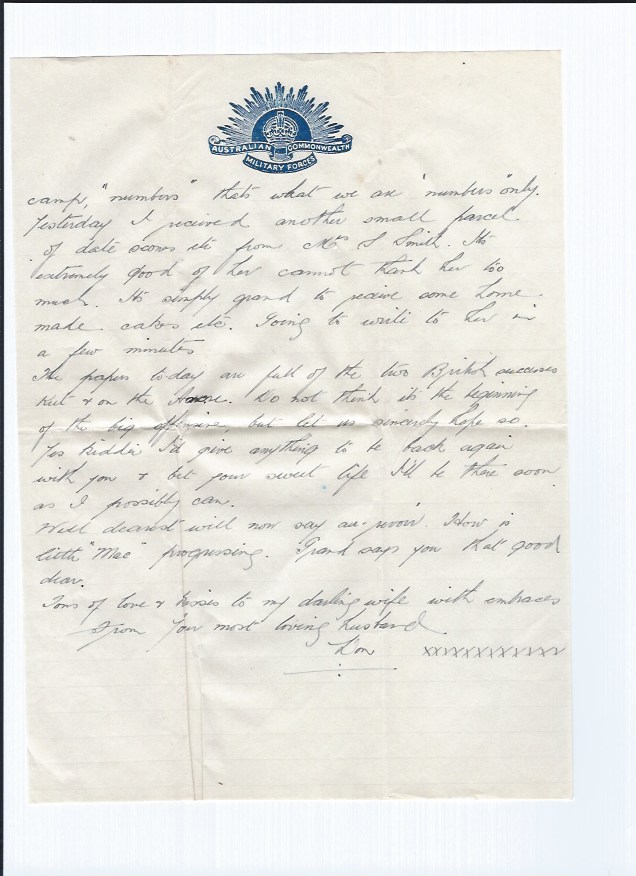 AUSTRALIAN COMMONWEALTH
MILITARY FORCES
camp, "numbers" thats what we are "numbers" only.
Yesterday I received another small parcel
of date scones etc from Mrs S Smith. Its
extremely good of her cannot thank her too
much. Its simply grand to receive some home
made cakes etc. Going to write to her in
a few minutes
The papers to-day are full of the two British successes
Kut & on the Do not think its the beginning
of the big offensive, but let us sincerely hope so.
Yes Kiddie I'd give anything to be back again
with you & bet your sweet life I'll be there soon
as I possibly can.
Well dearest will now say au-revoir. How is
little "Mac" progressing. Grand says you that good
dear.
Tons of love & kisses to my darling wife with embraces
From Your most loving husband
xxxxxxxxxxxxx